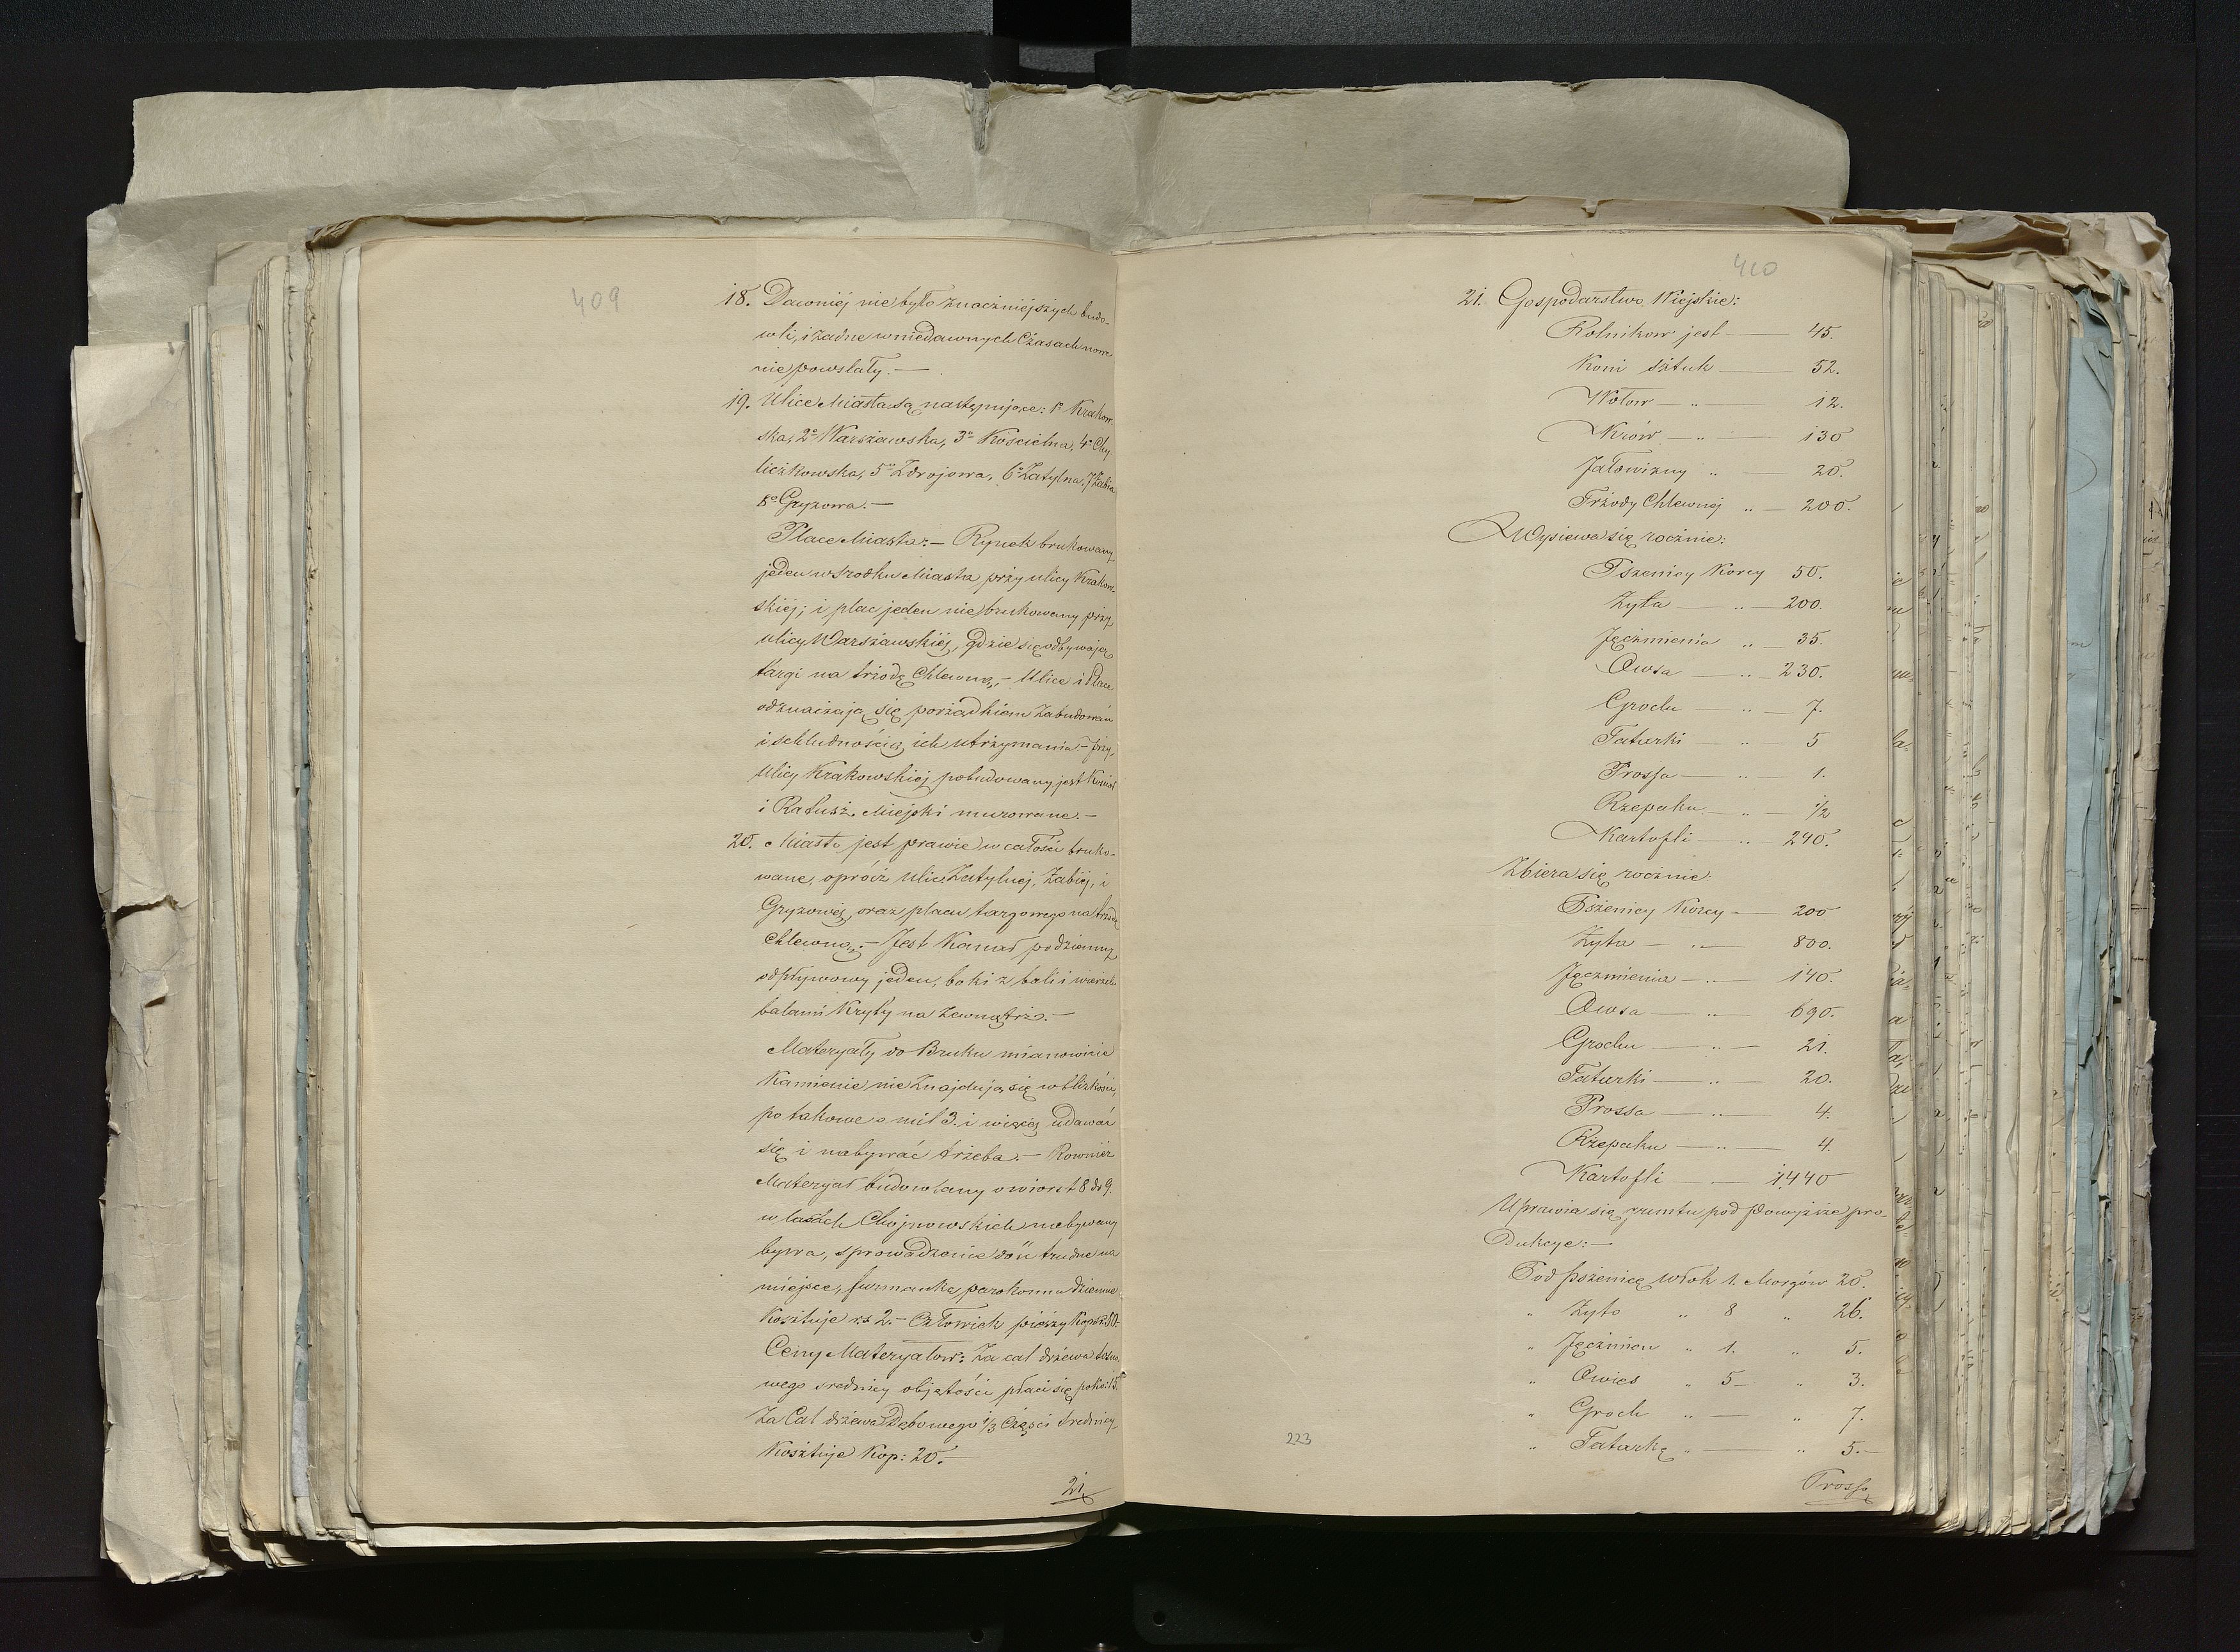 409
18. Dawniéj nie było znaczniejszych budo-
wli, i żadne w niedawnych Czasach nowe
nie powstały. —
19. Ulice Miasta są następujące: 1º Krakow-
ska, 2º Warszawska, 3º Kościelna, 4º Chy
liczkowska, 5º Zdrojowa, 6º Zatylna, 7º Żabia
8º Gryzowa. —
Place Miasta: — Rynek brukowany
jeden w środku Miasta przy ulicy Krakow-
skiéj; i plac jeden nie brukowany przy
ulicy Warszawskiéj, gdzie się odbywają
targi na trzodę Chlewną, — Ulice i Place
odznaczają się porządkiem Zabudowań
i schludnością ich utrzymania. — przy
Ulicy Krakowskiej pobudowany jest Kościół
i Ratusz Miejski murowane. —
20. Miasto jest prawie w całości bruko-
wane, oprócz ulic Zatylnej, Żabiéj, i
Gryzowéj, oraz placu targowego na trzodę
chlewną. — Jest Kanał podziemny
odpływowy jeden, boki z bali i wierzch
balami Kryty na Zewnątrz. —
Materyały do Bruku mianowicie
Kamienie nie Znajdują się w blizkości,
po takowe o mil 3. i więcéj udawać
się i nabywać trzeba. — Rownież
Materyał budowlany o wiorst 8 do 9.
w lasach Chojnowskich nabywany
bywa, sprowadzenie dość trudne na
miejsce, furmanka parokonna dziennie
Kosztuje rs 2. — Człowiek pieszy Kop.
Ceny Materyałow: Za cal drzewa
wego srednicy objętości płaci się po
Za Cal drzewa Dębowego 1/3 Części średnicy
Kosztuje Kop: 20. —
21
410
21. Gospodarstwo Wiejskie:
Rolnikow jest — 45.
Koni sztuk — 52.
Wołow — „ 12.
Krów — „ — 130
Jałowizny „ — 20.
Trzody Chlewnej „ — 200.
Wysiewa się rocznie:
Pszenicy Korcy 50.
Żyta „ — 200.
Jęczmienia „ — 35.
Owsa — „ — 230.
Grochu — „ — 7.
Tatarki — „ 5
Prossa — „ 1.
Rzepaku „ — 1/2
Kartofli — „ — 240.
Zbiera się rocznie:
Pszenicy Korcy — 200
Żyta — „ — 800.
Jęczmienia — „ — 140.
Owsa — „ — 690.
Grochu — „ — 21.
Tatarki — „ 20.
Prossa — „ — 4.
Rzepaku — „ — 4.
Kartofli — — 1,440
Uprawia się gruntu pod powyższe pro-
dukcye: —
Pod pszenicę włók 1. Morgów 20.
„ Żyto „ 8 „ 26.
„ Jęczmien „ 1. „ 5.
„ Owies „ 5 — „ 3.
„ Groch „ — „ 7.
„ Tatarkę „ — „ 5. —
Prosso
223